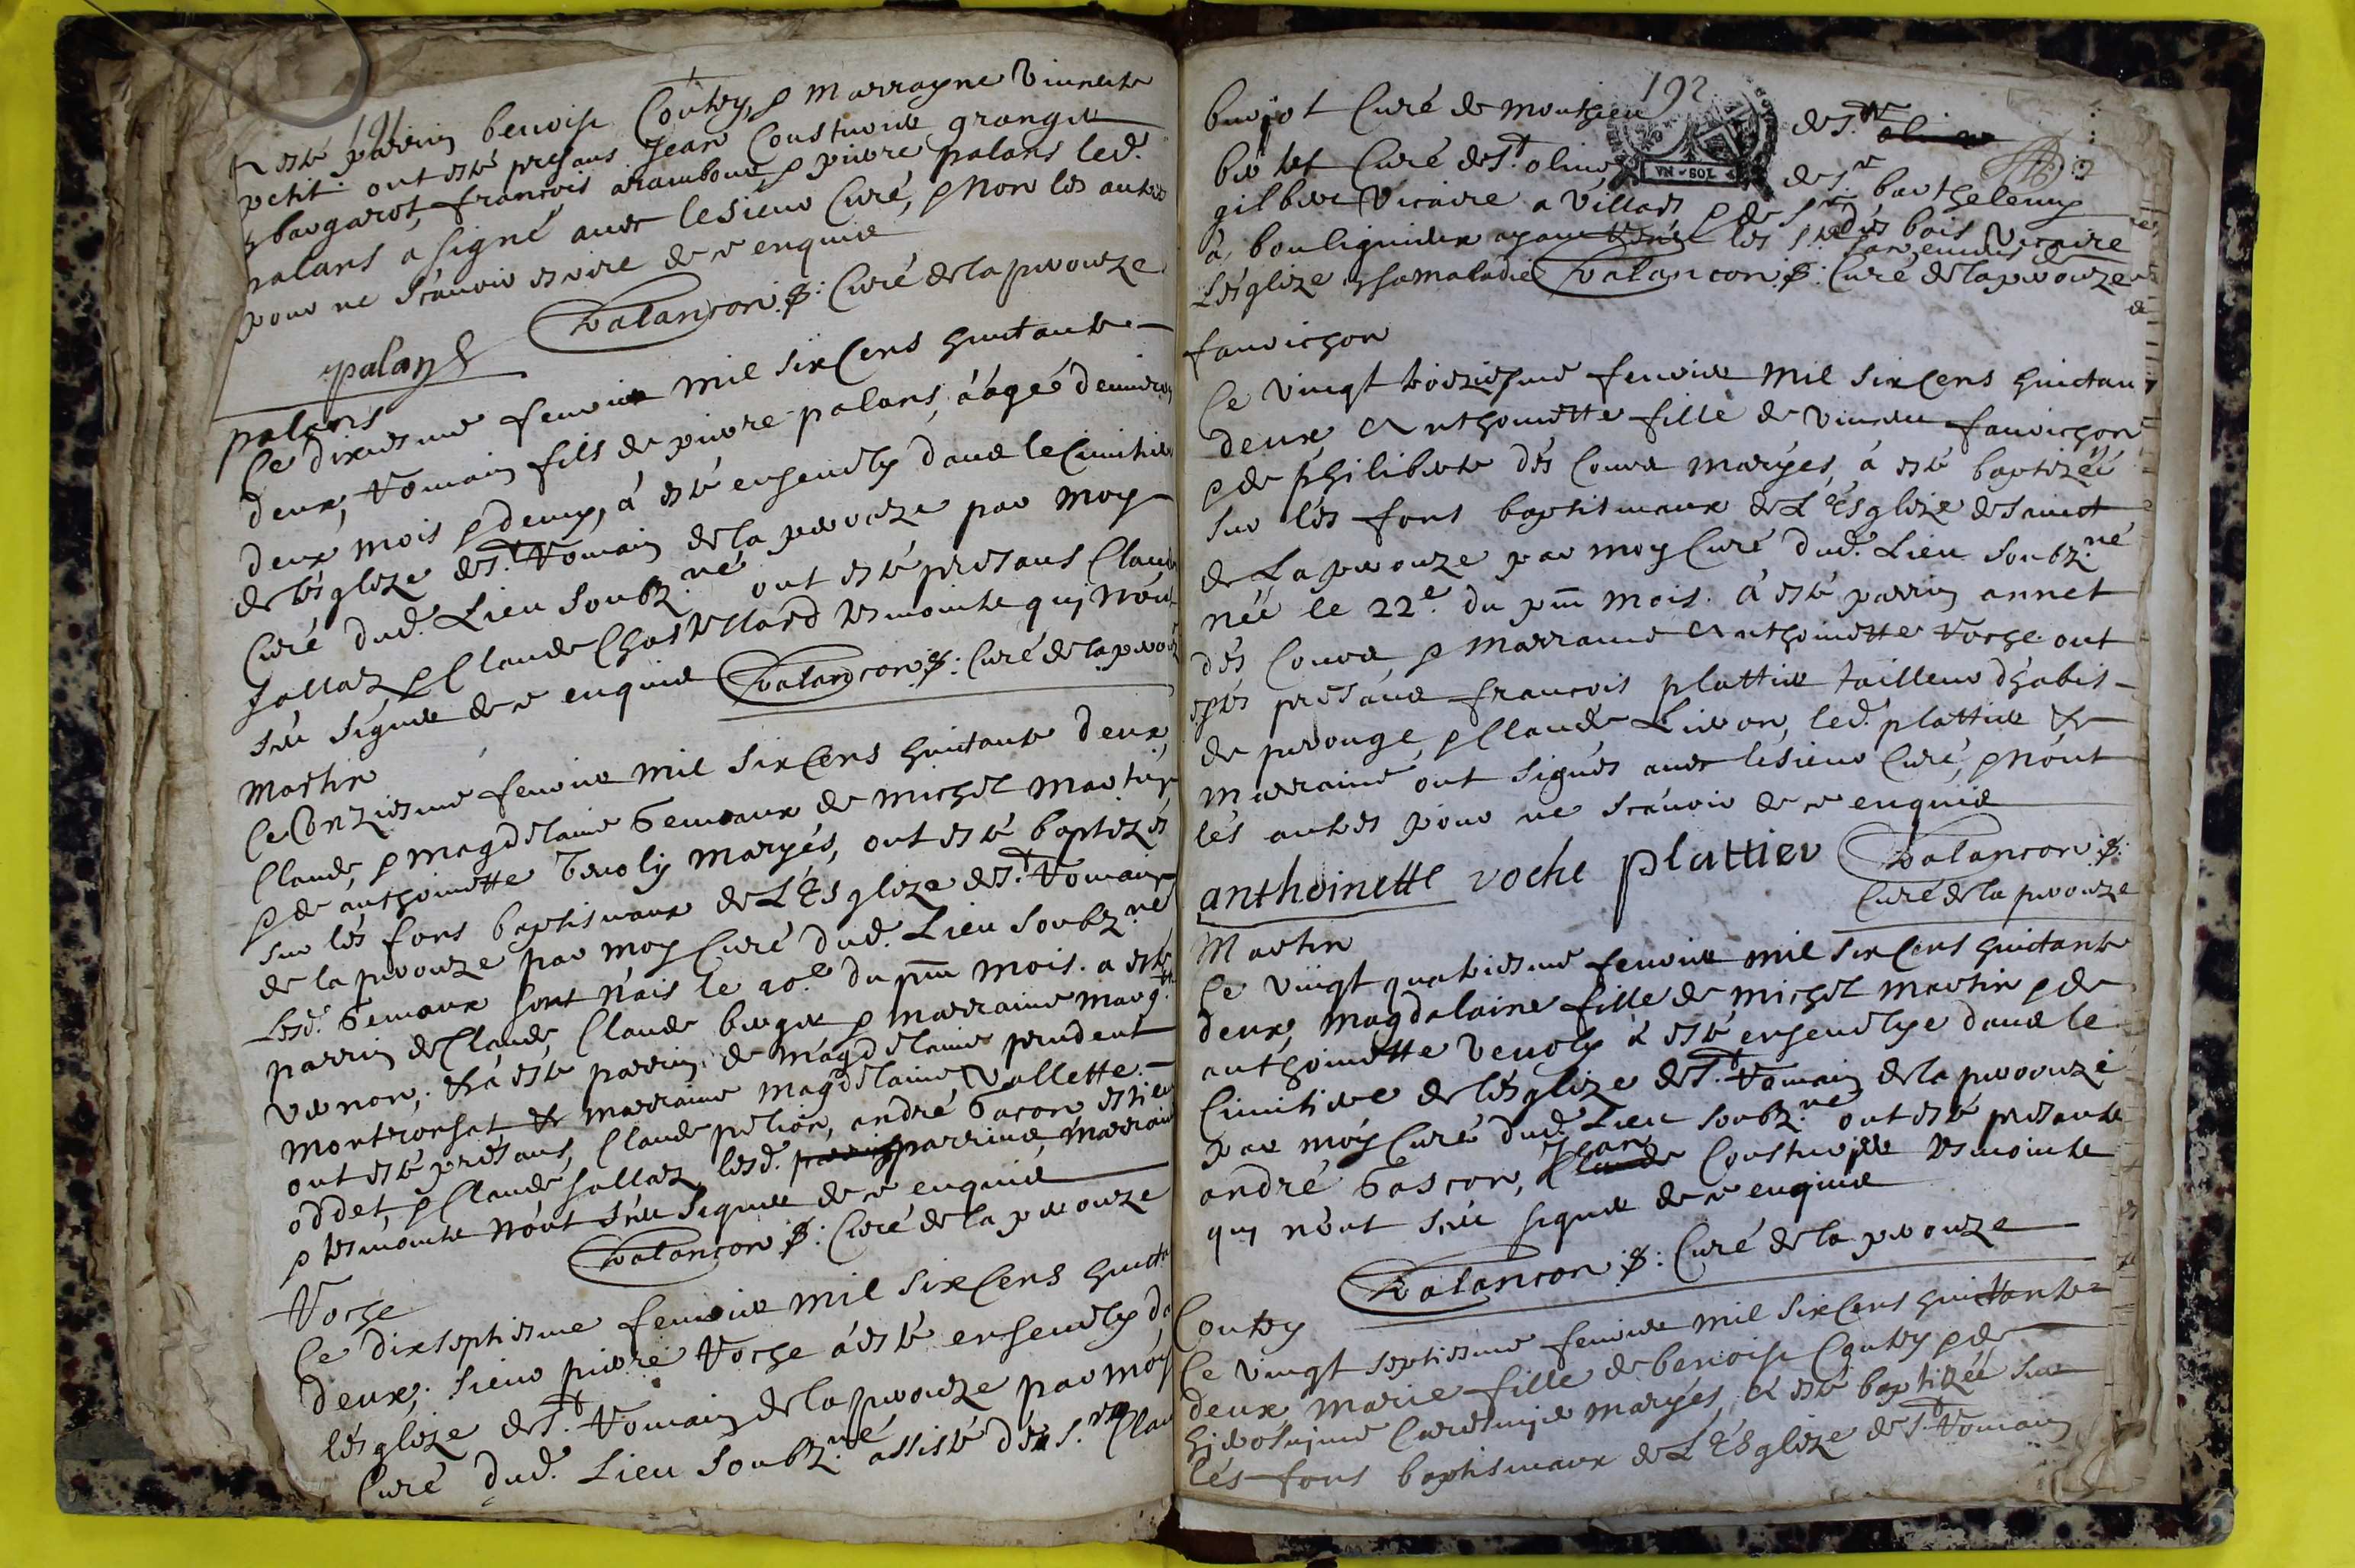 a esté parrin benoist Coutry, & marrayne
petit. ont esté presans Jean Cousturier granger
françois & pierre palans led.
palans a signé avec lesieur Curé, & Non les autres
pour ne scavoir escrire de ce enquis
palans Dalancon p: Curé de la peyrouze
palans
Ce dixiesme feuvrier mil sixCens huictante
deux, Romain fils de pierre palans, áagé denviron
deux mois & demy, á esté enseuely dans le Cimitiere
de lésglize de St. Romain de la peyrouze par moy
Curé dud. Lieu soubz.né ont esté présans Claude
Jallaz, & Claude Chastellard tesmoints quy n'ont
sceu signer de ce enquis Dalancon p: Curé de la peyrouze
Martin
Ce Onziesme feuvrier mil sixCens huictante deux,
Claude, & magdelaine Gemeaux de michel martin
& de anthoinette Veuoly maryés, ont esté baptizés
sur lés fons baptismaux de L'ésglize de St. Romain
de la peyrouze par moy Curé dud. Lieu soubz.né
Lesd. Gemeaux sont náis le 10e du pnt mois. a esté
parrin de Claude, Claude berger & marraine marg.te
Vernon, & a esté parrin de magdelaine prudent
montronsat & marraine magdelaine Vallette.
ont esté présans, Claude pelion, andré Gacon estienne
oddet, & Claude Jallaz, lesd. parrins marraines
& tesmoints n'ont sceu signer de ce enquis
Dalancon p: Curé de la peyrouze
Roche
Ce dixseptiesme feuvrier mil sixCens huictante
deux, sieur pierre Roche á esté enseuely dans
lésglize de St. Romain de la peyrouze par moy
Curé dud. Lieu soubz.né assisté dés s.rs Claude
192
Curé de Monthieu de S.re
Curé de St. oliue de S.re barthelemy
gilbert Vicaire a Villars & de S.re dés bois Vicaire
á bouligneux les
Lésglize sa maladie Dalancon p: Curé de la peyrouze
VN SOL
fauvichon
Ce Vingt troiziesme feuvrier mil sixCens huictante
deux, Anthoinette fille de Vincent fauvichon
& de philiberte dés Cours maryés, á esté baptizéé
sur lés fons baptismaux de L'Ésglize de sainct
de La peyrouze par moy Curé dud. Lieu soubz.né
néé le 22e. du pnt mois. á esté parrin annet
dés Cours & marraine Anthoinette Roche ont
estés présans francois plattier tailleur d'habis
de perouge, & Claude Liuon, led. plattier &
marraine ont signés avec lésieur Curé, & Nont
lés autres pour ne scávoir de ce enquis
anthoinette roche plattier Dalancon p:
Curé de la peyrouze
Martin
Ce Vingt quatriesme feuvrier mil sixCens huictante
deux, magdalaine fille de michel martin & de
anthoinette Veuoly á esté enseuelye dans le
Cimitiere de lésglize de St. Romain de la peyrouze
par moy Curé dud. Lieu soubz.né ont esté présants
andré Gascon, Jean Cousturier tesmoints
quy n'ont sceu signer de ce enquis
Dalancon p: Curé de la peyrouze
Coutry
Ce Vingt septiesme feuvrier mil sixCens huictante
deux, Marie fille de benoist Coutry & de
maryés, á esté baptizéé sur
lés fons baptismaux de L'Ésglize de St. Romain